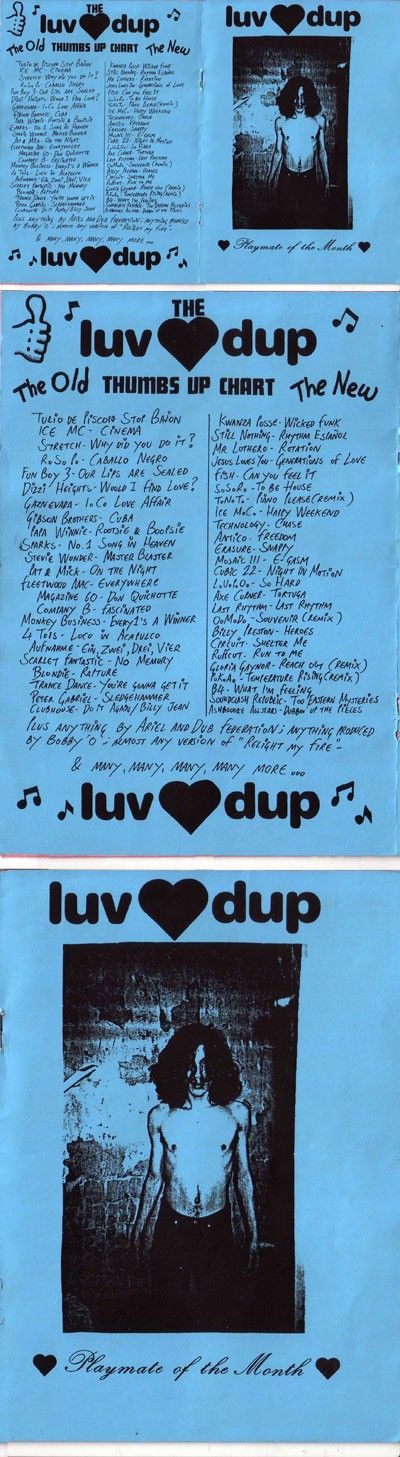 THE
luv dup
The Old THUMBS UP CHART The New
luv dup
luv dup
Playmate of the Month
THE
luv dup
The Old THUMBS UP CHART The New
TULIO DE PISCOPO STOP BAJON
ICE MC - CINEMA
STRETCH - WHY DID YOU DO IT?
ROSO PO - CABALLO NEGRO
FUN BOY 3 - OUR LIPS ARE SEALED
DIZZI HEIGHTS - WOULD I FIND LOVE?
GAZNEVADA - I.C. LOVE AFFAIR
GIBSON BROTHERS - CUBA
PAPA WINNIE - ROOTSIE & BOOPSIE
SPARKS - NO.1 SONG IN HEAVEN
STEVIE WONDER - MASTER BLASTER
PAT & MICK - ON THE NIGHT
FLEETWOOD MAC - EVERYWHERE
MAGAZINE 60 - DON QUICHOTTE
COMPANY B - FASCINATED
MONKEY BUSINESS - EVERY1'S A WINNER
4 TOPS - LOCO IN ACAPULCO
AUFNAHME - EIN, ZWEI, DREI, VIER
SCARLET FANTASTIC - NO MEMORY
BLONDIE - RAPTURE
TRANCE DANCE - YOU'RE GONNA GET IT
PETER GABRIEL - SLEDGEHAMMER
CLUBHOUSE - DO IT AGAIN/ BILLY JEAN
KWANZA POSSE - WICKED FUNK
STILL NOTHING - RHYTHM ESPAÑOL
MR LUTHERO - ROTATION
JESUS LOVES YOU - GENERATIONS OF LOVE
FISH - CAN YOU FEEL IT
S.S.R. - TO BE HOUSE
T.N.T. - PIANO PLEASE (REMIX)
ICE M.C. - HAPPY WEEKEND
TECHNOLOGY - CHASE
ANTICO - FREEDOM
ERASURE - SNAPPY
MOSAIC III - E-GASM
CUBIC 22 - NIGHT IN MOTION
L.U.P.O. - SO HARD
AXE CORNER - TORTUGA
LAST RHYTHM - LAST RHYTHM
O.M.D. - SOUVENIR (REMIX)
BILLY PRESTON - HEROES
CIRCUIT - SHELTER ME
RUFFCUT - RUN TO ME
GLORIA GAYNOR - REACH OUT (REMIX)
P.K.A. - TEMPERATURE RISING (REMIX)
B4 - WHAT I'M FEELING
SOUNDCLASH REPUBLIC - TOO EASTERN MYSTERIES
ASHBOURNE ALLSTARS - DUBBIN' UP THE PIECES
PLUS ANYTHING BY ARIEL AND DUB FEDERATION; ANYTHING PRODUCED
BY BOBBY 'O'; ALMOST ANY VERSION OF "RELIGHT MY FIRE" -
& MANY, MANY, MANY, MANY MORE...
luv dup
luv dup
Playmate of the Month